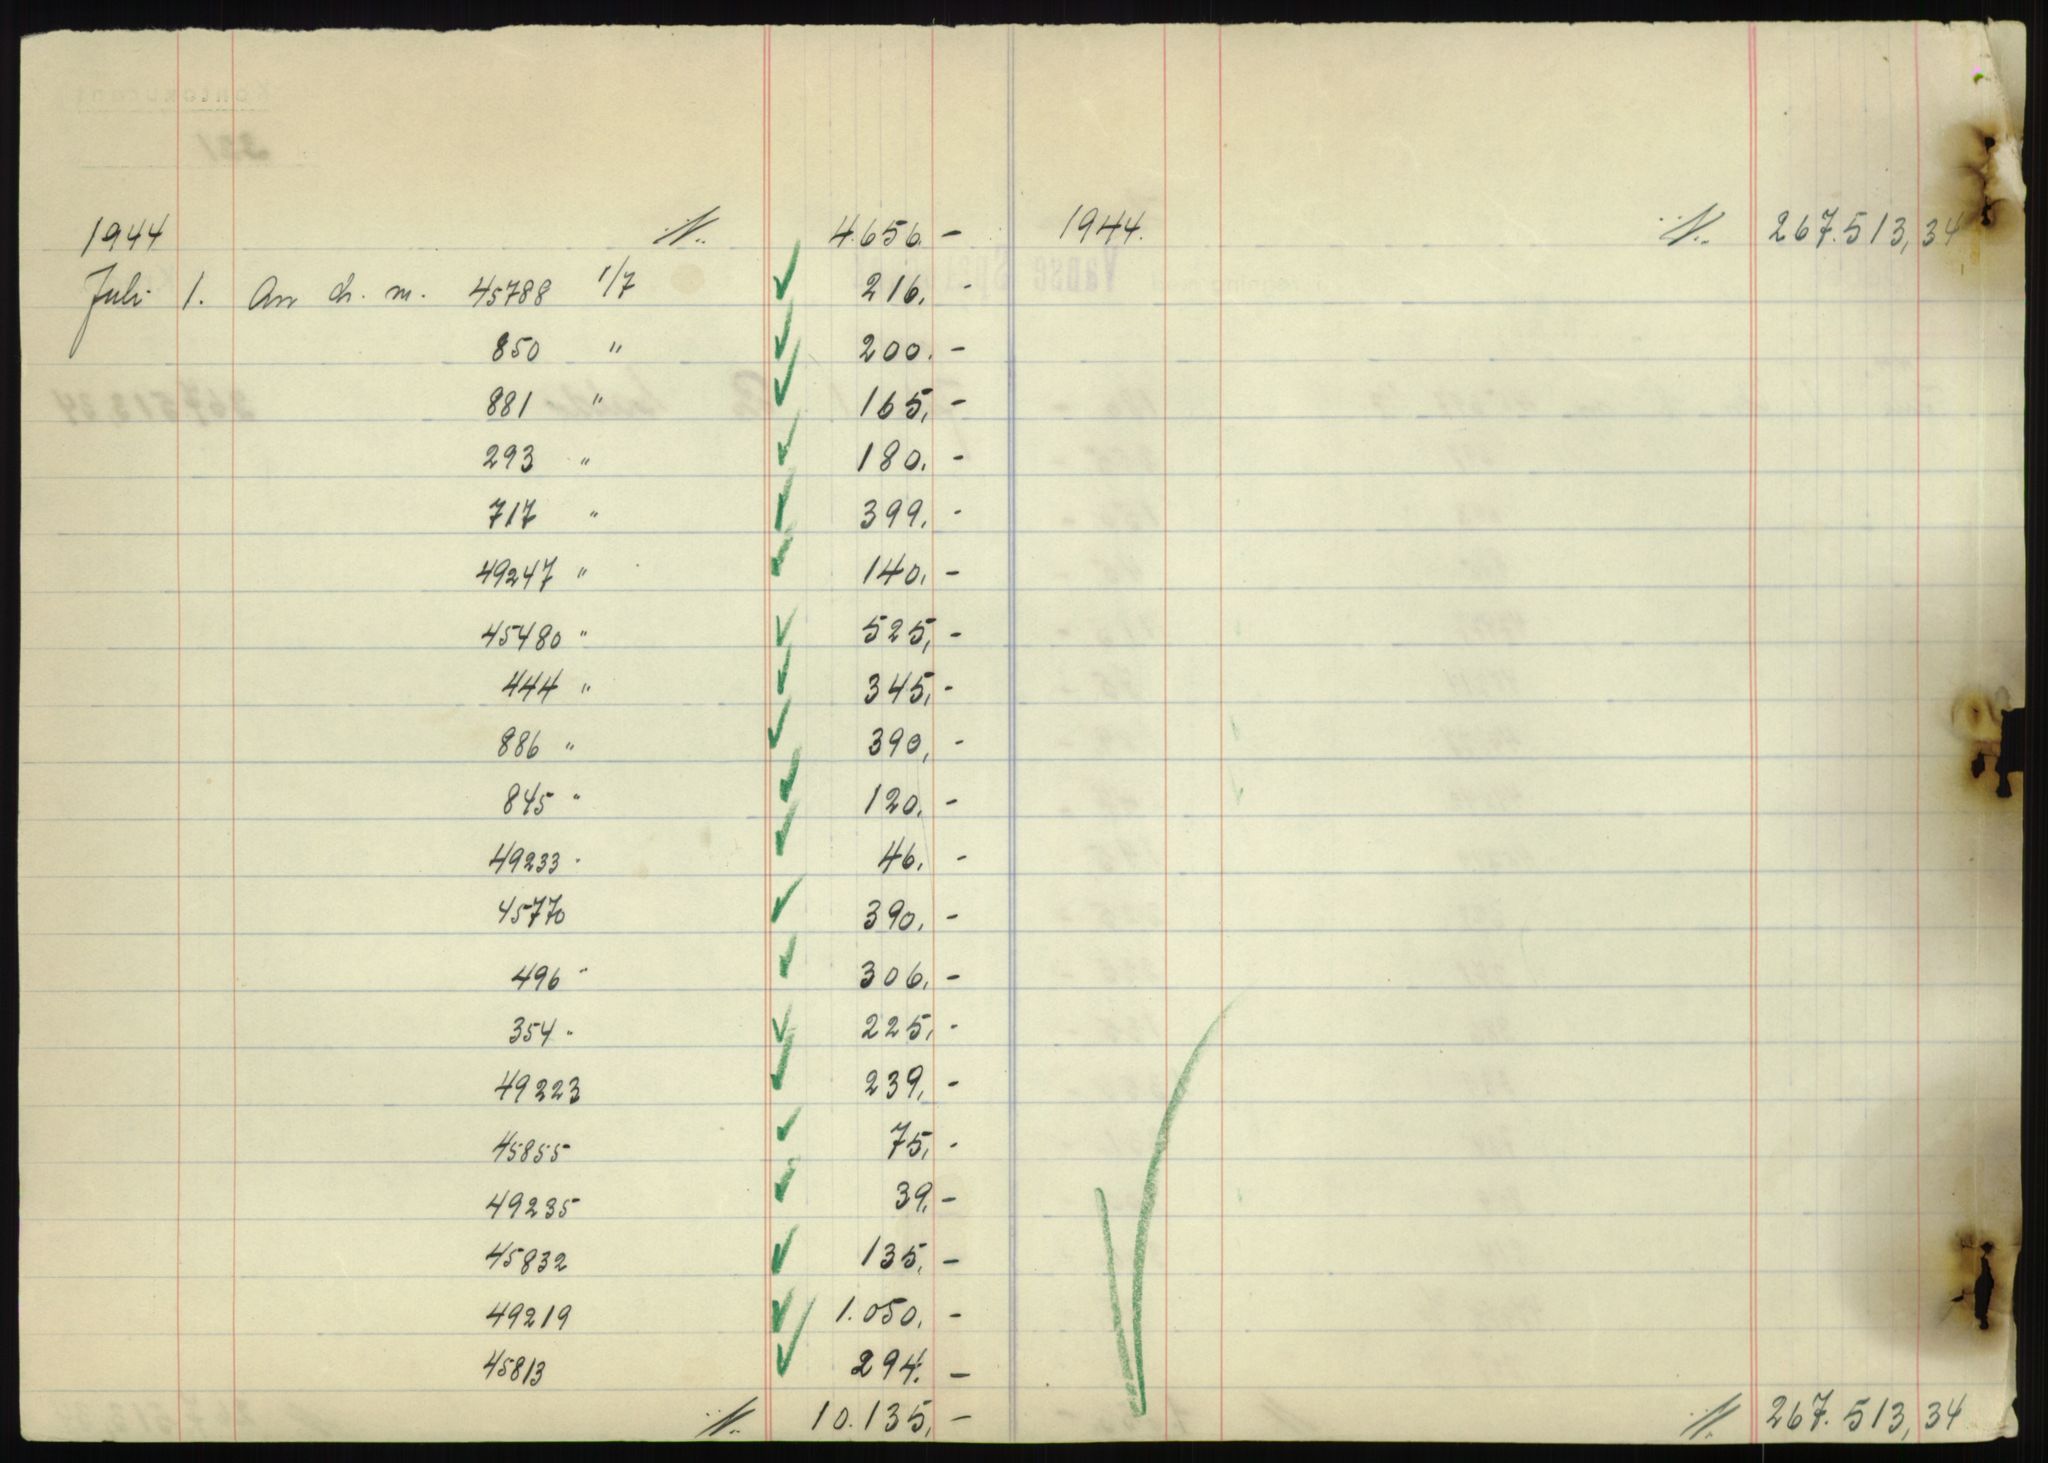 1944 ·/· 4.656.- 1944. ·/· 267.513,34
Juli 1. An ch. m. 45788 1/7 216.-
850 " 200.-
881 " 165,-
293 " 180.-
717 " 399.-
49247 " 140.-
45480 " 525,-
444 " 345,-
886 " 390,-
845 " 120.-
49233 " 46.-
45770 390.-
496 " 306.-
354 " 225,-
49223 239,-
45855 75,-
49235 39,-
45832 135,-
49219 1.050.-
45813 294.-
·/· 10.135,- ·/· 267.513,34